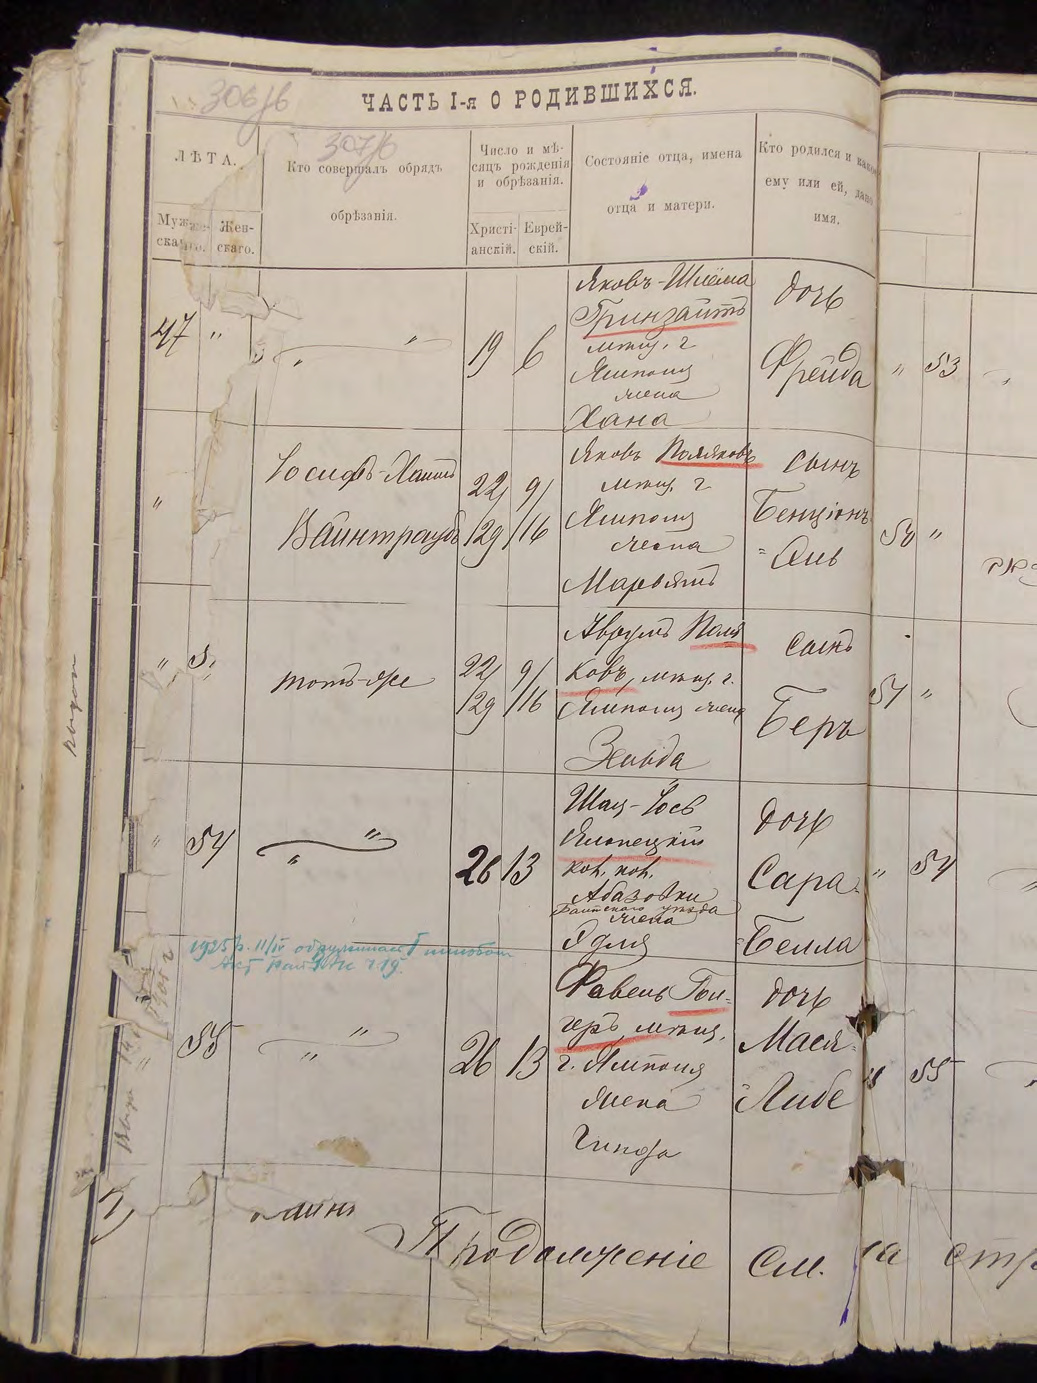 306/6
ЧАСТЬ I-я О РОДИВШИХСЯ.
307/6
ЛѢТА.
Мужскаго.
Женскаго.
Кто совершалъ обрядъ
обрѣзанія.
Число и мѣ-
сяцъ рожденія
и обрѣзанія.
Христі-
анскій.
Еврей-
скій.
Состояніе отца, имена
отца и матери.
Кто родился и какое
ему или ей, дано
имя.
47 " " "
19 6
Яковъ-Шлёма
Гринзайтъ
мѣщ. г.
Ямполя
жена
Хана
дочь
Фрейда
" 53
"
Іосифъ-Хаимъ
Вайнтраубъ
22/29 9/16
Яковъ Поляковъ
мѣщ. г.
Ямполя
жена
Марьямъ
сынъ
Бенціонъ
=Оль
50 "
"
тотъ-же
22/29 9/16
Аврумъ Поля
ковъ, мѣщ. г.
Ямполя жена
Зельда
сынъ
Беръ
51 "
" 54 " "
26 13
Шая-Іось
кол. кол.
Абазовки
Балтскаго уѣзда
жена
Эдля
дочь
Сара
=Бейла
" 54
1925 р. 11/IV
" 55 " "
26 13
Фавель Гои-
геръ мѣщ.
г. Ямполя
жена
Гинда
дочь
Мася
=Либе
" 55
Продолженіе см. на стр